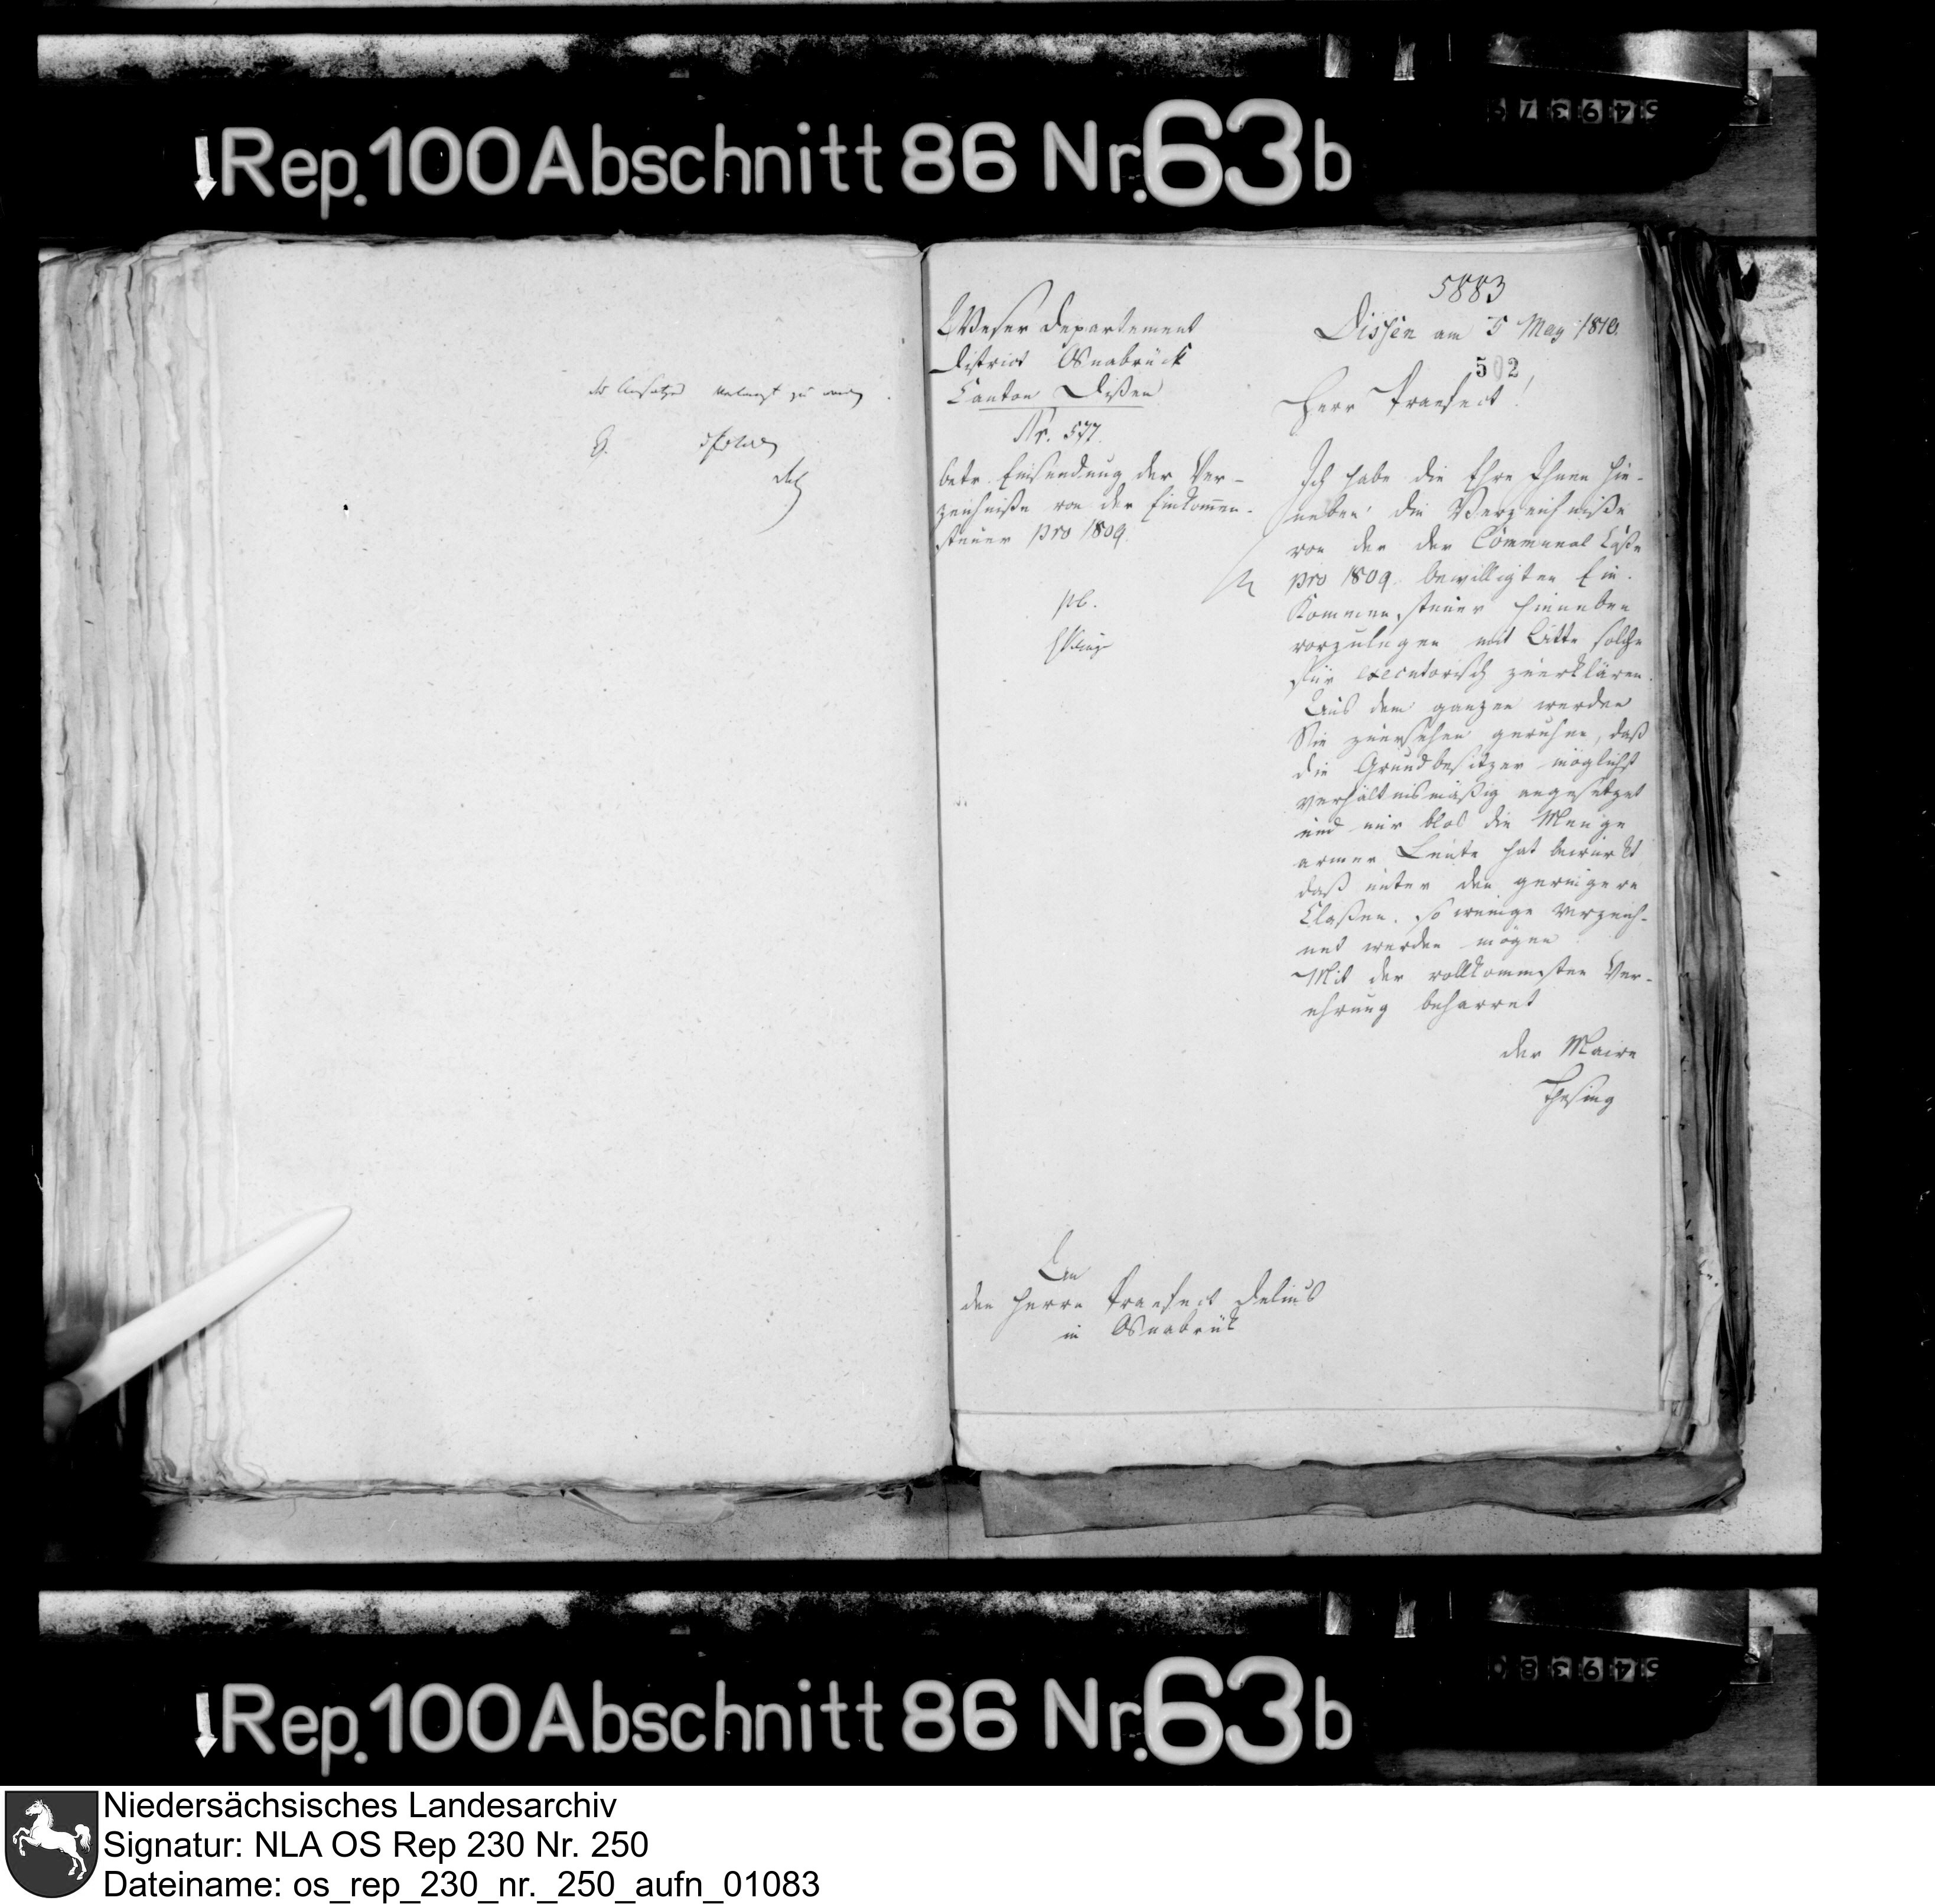 Rep. 100 Abschnitt 86 Nr. 63 b
zu
5883
Weser Departement
District Osnabrück
Canton Dißen
Nr. 577.
betr. Einsendung der Ver-
zeichniße von der Einkom̅en-
steuer pro 1809.
Dissen am 5 May 1810.
502
Herr Praefect!
Ich habe die Ehre Ihnen hie-
neben die Verzeichniße
von der der Communal Caße
pro 1809. bewilligten Ein-
kommensteuer hieneben
vorzulegen mit Bitte solche
für executorisch zuerklären.
Aus dem ganzen werden
Sie zuersehen geruhen, daß
die Grundbesitzer möglichst
verhältnismäßig angesetzet
und nur blos die Menge
armer Leute hat bewürkt
daß unter den geringern
Claßen so wenige verzeich-
net werden mögen
Mit der vollkommsten Ver-
ehrung beharret
der Maire
Thesing
An
den Herrn Praefect Delius
in Osnabrück
Rep. 100 Abschnitt 86 Nr. 63 b
Niedersächsisches Landesarchiv
Signatur: NLA OS Rep 230 Nr. 250
Dateiname: os_rep_230_nr._250_aufn_01083